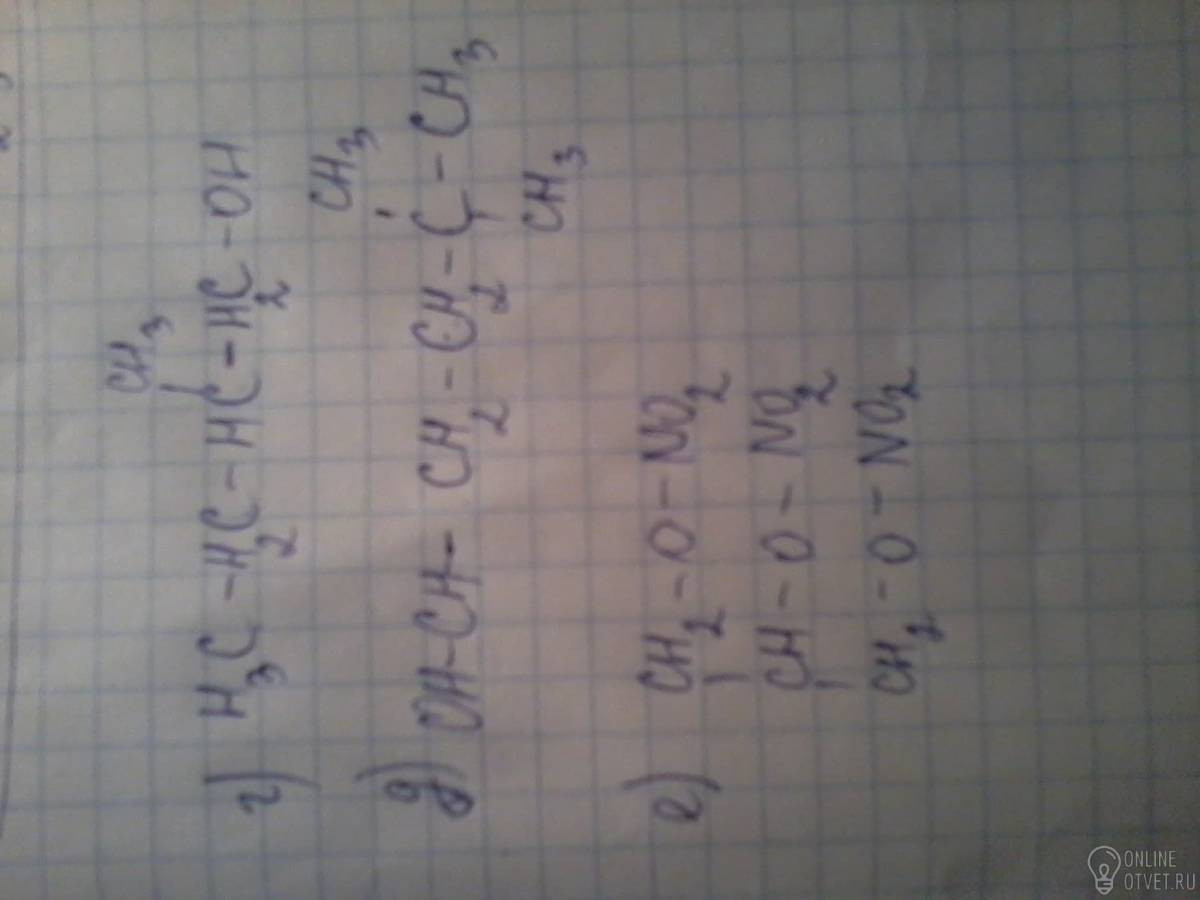 CH₃
г) H₃C - H₂C - HC - H₂C - OH
CH₃
д) OH - CH - CH₂ - CH₂ - C - CH₃
CH₃
е) CH₂ - O - NO₂
CH - O - NO₂
CH₂ - O - NO₂
ONLINE
OTVET.RU